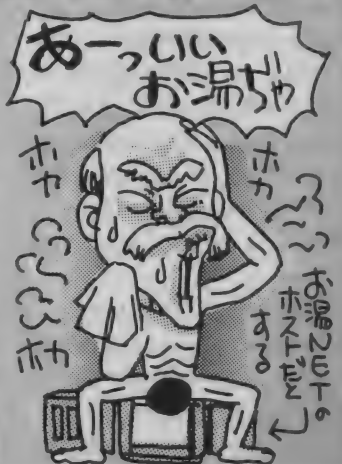 あーっいい
お湯ぢゃ
ホカ
ホカ
ふ〜〜っ
お湯NETの
ホストだと
する